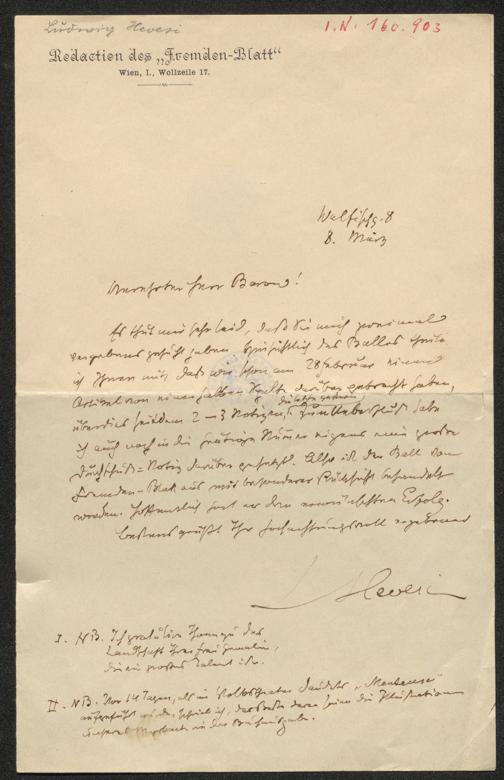 Ludwig Hevesi
I.N. 160.903
Redaction des „Fremden-Blatt“
Wien, I., Wollzeile 17.
Walfischg. 8
8. März
Verehrter Herr Baron!
Es thut mir sehr leid, daß Sie mich zweimal
vergebens gesucht haben. bezüglich des Balles theile
ich Ihnen mit, daß wir schon am 28 Februar einen
Artikel von einer halben Spalte darüber gebracht haben,
überdies seitdem 2–3 Notizen, zum Ueberfluß habe
ich auch noch in die heutige Numer eigens eine große
Notiz darüber gesetzt. Also ist der Ball vom
Fremden-Blatt aus mit besonderer Rücksicht behandelt
worden. Hoffentlich hat er den erwünschten Erfolg.
Bestens grüßt Ihr hochachtungsvoll ergebener
Hevesi
I. NB. Ich gratulire Ihnen zu der
Landschaft Ihrer Frau Gemalin,
die ein großes Talent ist.
II. NB. Vor 14 Tagen, als im Volkstheater
aufgeführt wurde, schrieb ich, das Beste daran seien die Illustrationen
in der Buchausgabe.